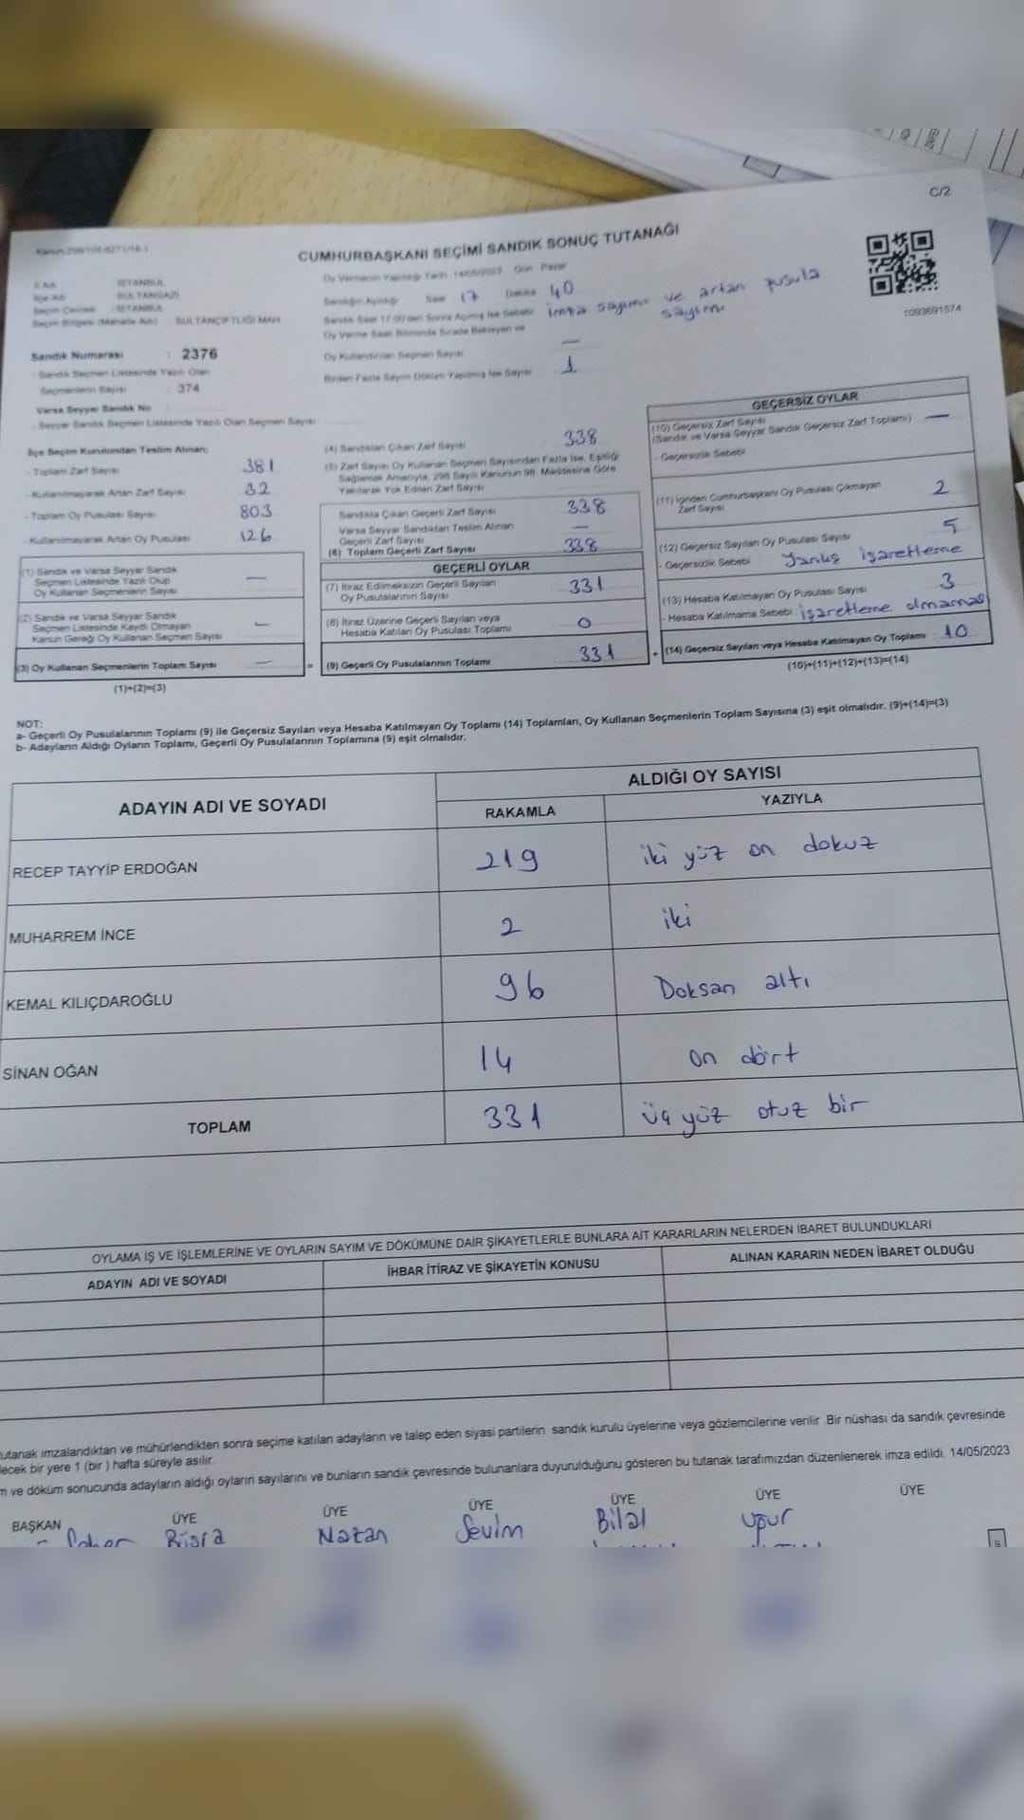 C/2
CUMHURBAŞKANI SEÇİMİ SANDIK SONUÇ TUTANAĞI
Oy Vermenin Yapıldığı Tarih 14/05/2023 Gün Pazar
İl Adı İSTANBUL
İlçe Adı SULTANGAZİ
Seçim Çevresi İSTANBUL
Seçim Bölgesi (Mahalle Adı) SULTANÇİFTLİĞİ MAH
Sandığın Açıldığı Saat 17 Dakika 40
Sandık Saat 17:00'den Sonra Açılmış İse Sebebi imza sayımı ve artan pusula sayımı
Oy Verme Saati Bitiminde Sırada Bekleyen ve
Oy Kullandırılan Seçmen Sayısı —
Birden Fazla Sayım Döküm Yapılmış İse Sayısı 1
1093691574
Sandık Numarası : 2376
Sandık Seçmen Listesinde Yazılı Olan
Seçmenlerin Sayısı : 374
Varsa Seyyar Sandık No
- Seyyar Sandık Seçmen Listesinde Yazılı Olan Seçmen Sayısı
İlçe Seçim Kurulundan Teslim Alınan;
- Toplam Zarf Sayısı 381
- Kullanılmayarak Artan Zarf Sayısı 32
- Toplam Oy Pusulası Sayısı 803
- Kullanılmayarak Artan Oy Pusulası 126
(1) Sandık ve Varsa Seyyar Sandık
Seçmen Listesinde Yazılı Olup
Oy Kullanan Seçmenlerin Sayısı —
(2) Sandık ve Varsa Seyyar Sandık
Seçmen Listesinde Kayıtlı Olmayan
Kanun Gereği Oy Kullanan Seçmen Sayısı —
(3) Oy Kullanan Seçmenlerin Toplam Sayısı —
(1)+(2)=(3)
(4) Sandıktan Çıkan Zarf Sayısı 338
(5) Zarf Sayısı Oy Kullanan Seçmen Sayısından Fazla İse, Eşitliği
Sağlamak Amacıyla, 298 Sayılı Kanunun 98. Maddesine Göre
Yakılarak Yok Edilen Zarf Sayısı
Sandıkta Çıkan Geçerli Zarf Sayısı 338
Varsa Seyyar Sandıktan Teslim Alınan
Geçerli Zarf Sayısı —
(6) Toplam Geçerli Zarf Sayısı 338
GEÇERLİ OYLAR
(7) İtiraz Edilmeksizin Geçerli Sayılan
Oy Pusulalarının Sayısı 331
(8) İtiraz Üzerine Geçerli Sayılan veya
Hesaba Katılan Oy Pusulası Toplamı 0
= (9) Geçerli Oy Pusulalarının Toplamı 331
GEÇERSİZ OYLAR
(10) Geçersiz Zarf Sayısı —
(Sandık ve Varsa Seyyar Sandık Geçersiz Zarf Toplamı)
- Geçersizlik Sebebi
(11) İçinden Cumhurbaşkanı Oy Pusulası Çıkmayan
Zarf Sayısı 2
(12) Geçersiz Sayılan Oy Pusulası Sayısı 5
- Geçersizlik Sebebi Yanlış işaretleme
(13) Hesaba Katılmayan Oy Pusulası Sayısı 3
- Hesaba Katılmama Sebebi işaretleme olmaması
+ (14) Geçersiz Sayılan veya Hesaba Katılmayan Oy Toplamı 10
(10)+(11)+(12)+(13)=(14)
NOT:
a- Geçerli Oy Pusulalarının Toplamı (9) ile Geçersiz Sayılan veya Hesaba Katılmayan Oy Toplamı (14) Toplamları, Oy Kullanan Seçmenlerin Toplam Sayısına (3) eşit olmalıdır. (9)+(14)=(3)
b- Adayların Aldığı Oyların Toplamı, Geçerli Oy Pusulalarının Toplamına (9) eşit olmalıdır.
ADAYIN ADI VE SOYADI
ALDIĞI OY SAYISI
RAKAMLA YAZIYLA
RECEP TAYYİP ERDOĞAN 219 iki yüz on dokuz
MUHARREM İNCE 2 iki
KEMAL KILIÇDAROĞLU 96 Doksan altı
SİNAN OĞAN 14 on dört
TOPLAM 331 üç yüz otuz bir
OYLAMA İŞ VE İŞLEMLERİNE VE OYLARIN SAYIM VE DÖKÜMÜNE DAİR ŞİKAYETLERLE BUNLARA AİT KARARLARIN NELERDEN İBARET BULUNDUKLARI
ADAYIN ADI VE SOYADI İHBAR İTİRAZ VE ŞİKAYETİN KONUSU ALINAN KARARIN NEDEN İBARET OLDUĞU
utanak imzalandıktan ve mühürlendikten sonra seçime katılan adayların ve talep eden siyasi partilerin sandık kurulu üyelerine veya gözlemcilerine verilir Bir nüshası da sandık çevresinde
lecek bir yere 1 (bir ) hafta süreyle asılır.
m ve döküm sonucunda adayların aldığı oyların sayılarını ve bunların sandık çevresinde bulunanlara duyurulduğunu gösteren bu tutanak tarafımızdan düzenlenerek imza edildi. 14/05/2023
BAŞKAN ÜYE ÜYE ÜYE ÜYE ÜYE ÜYE
Büşra Nazan Sevim Bilal Uğur